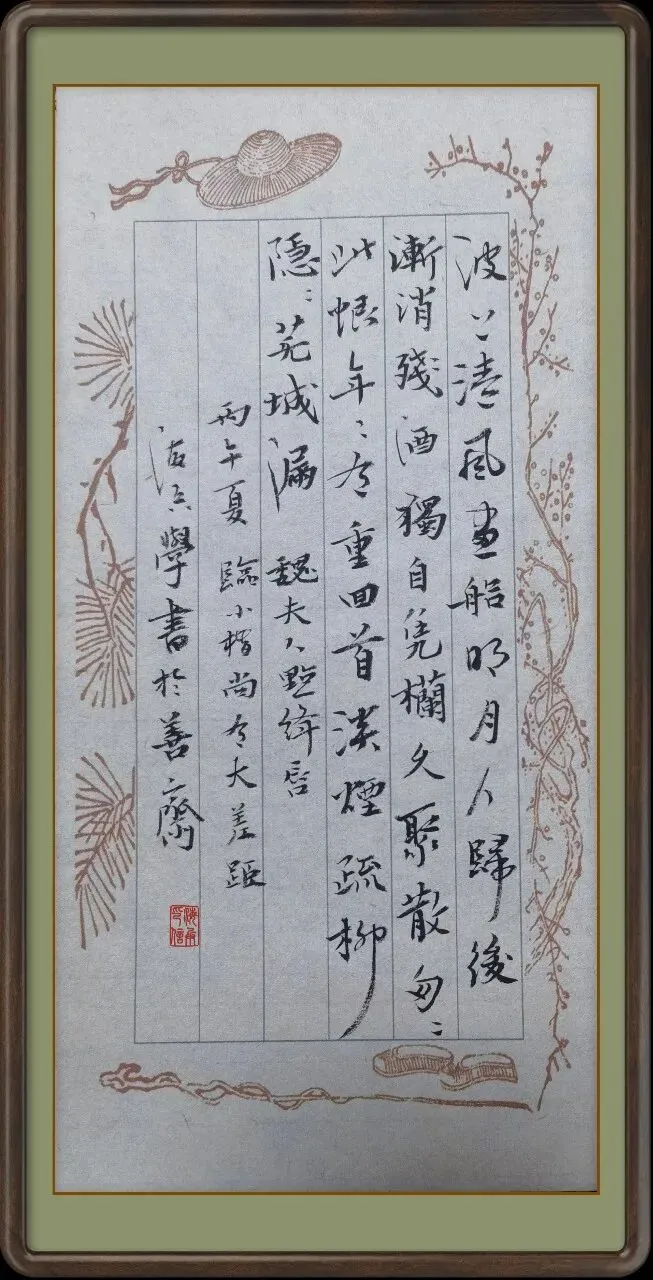 波上清風畫船明月人歸後
漸消殘酒獨自凭欄久聚散匆〻
此恨年〻有重回首淡煙疏柳
隱〻芜城漏 魏夫人點絳唇
丙午夏 臨小楷尚有大差距
學書於善齋